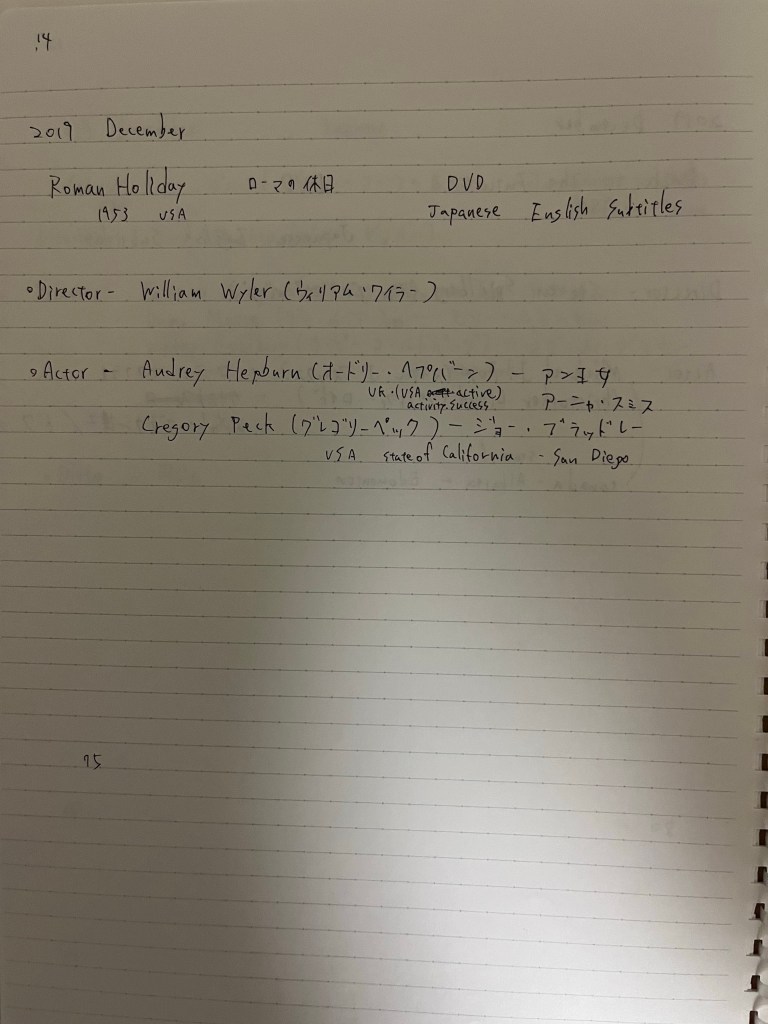 14
2019 December
Roman Holiday ローマの休日 DVD
1953 USA Japanese English Subtitles
Director - William Wyler (ウィリアム・ワイラー)
Actor - Audrey Hepburn (オードリー・ヘプバーン) - アン王女
UK・(USA active) アーニャ・スミス
activity.success
Cregory Peck (グレゴリーペック) - ジョー・ブラッドレー
USA state of California - San Diego
75